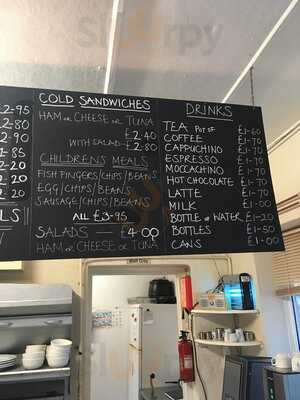 2.95
2.80
2.90
1.85
2.20
2.20
2.20
LS
COLD SANDWICHES
HAM OR CHEESE OR TUNA
£2.40
WITH SALAD £2.80
CHILDRENS MEALS
FISH FINGERS/CHIPS/BEANS
EGG/CHIPS/BEANS
SAUSAGE/CHIPS/BEANS
ALL £3.95
SALADS — £4.00
HAM OR CHEESE OR TUNA
DRINKS
TEA POT OF £1-60
COFFEE £1-70
CAPPUCHINO £1-70
ESPRESSO £1-70
MOCCACHINO £1-70
HOT CHOCOLATE £1-70
LATTE £1-70
MILK £1-00
BOTTLE OF WATER £1-20
BOTTLES £1-50
CANS £1-00
Staff Only
Sluurpy